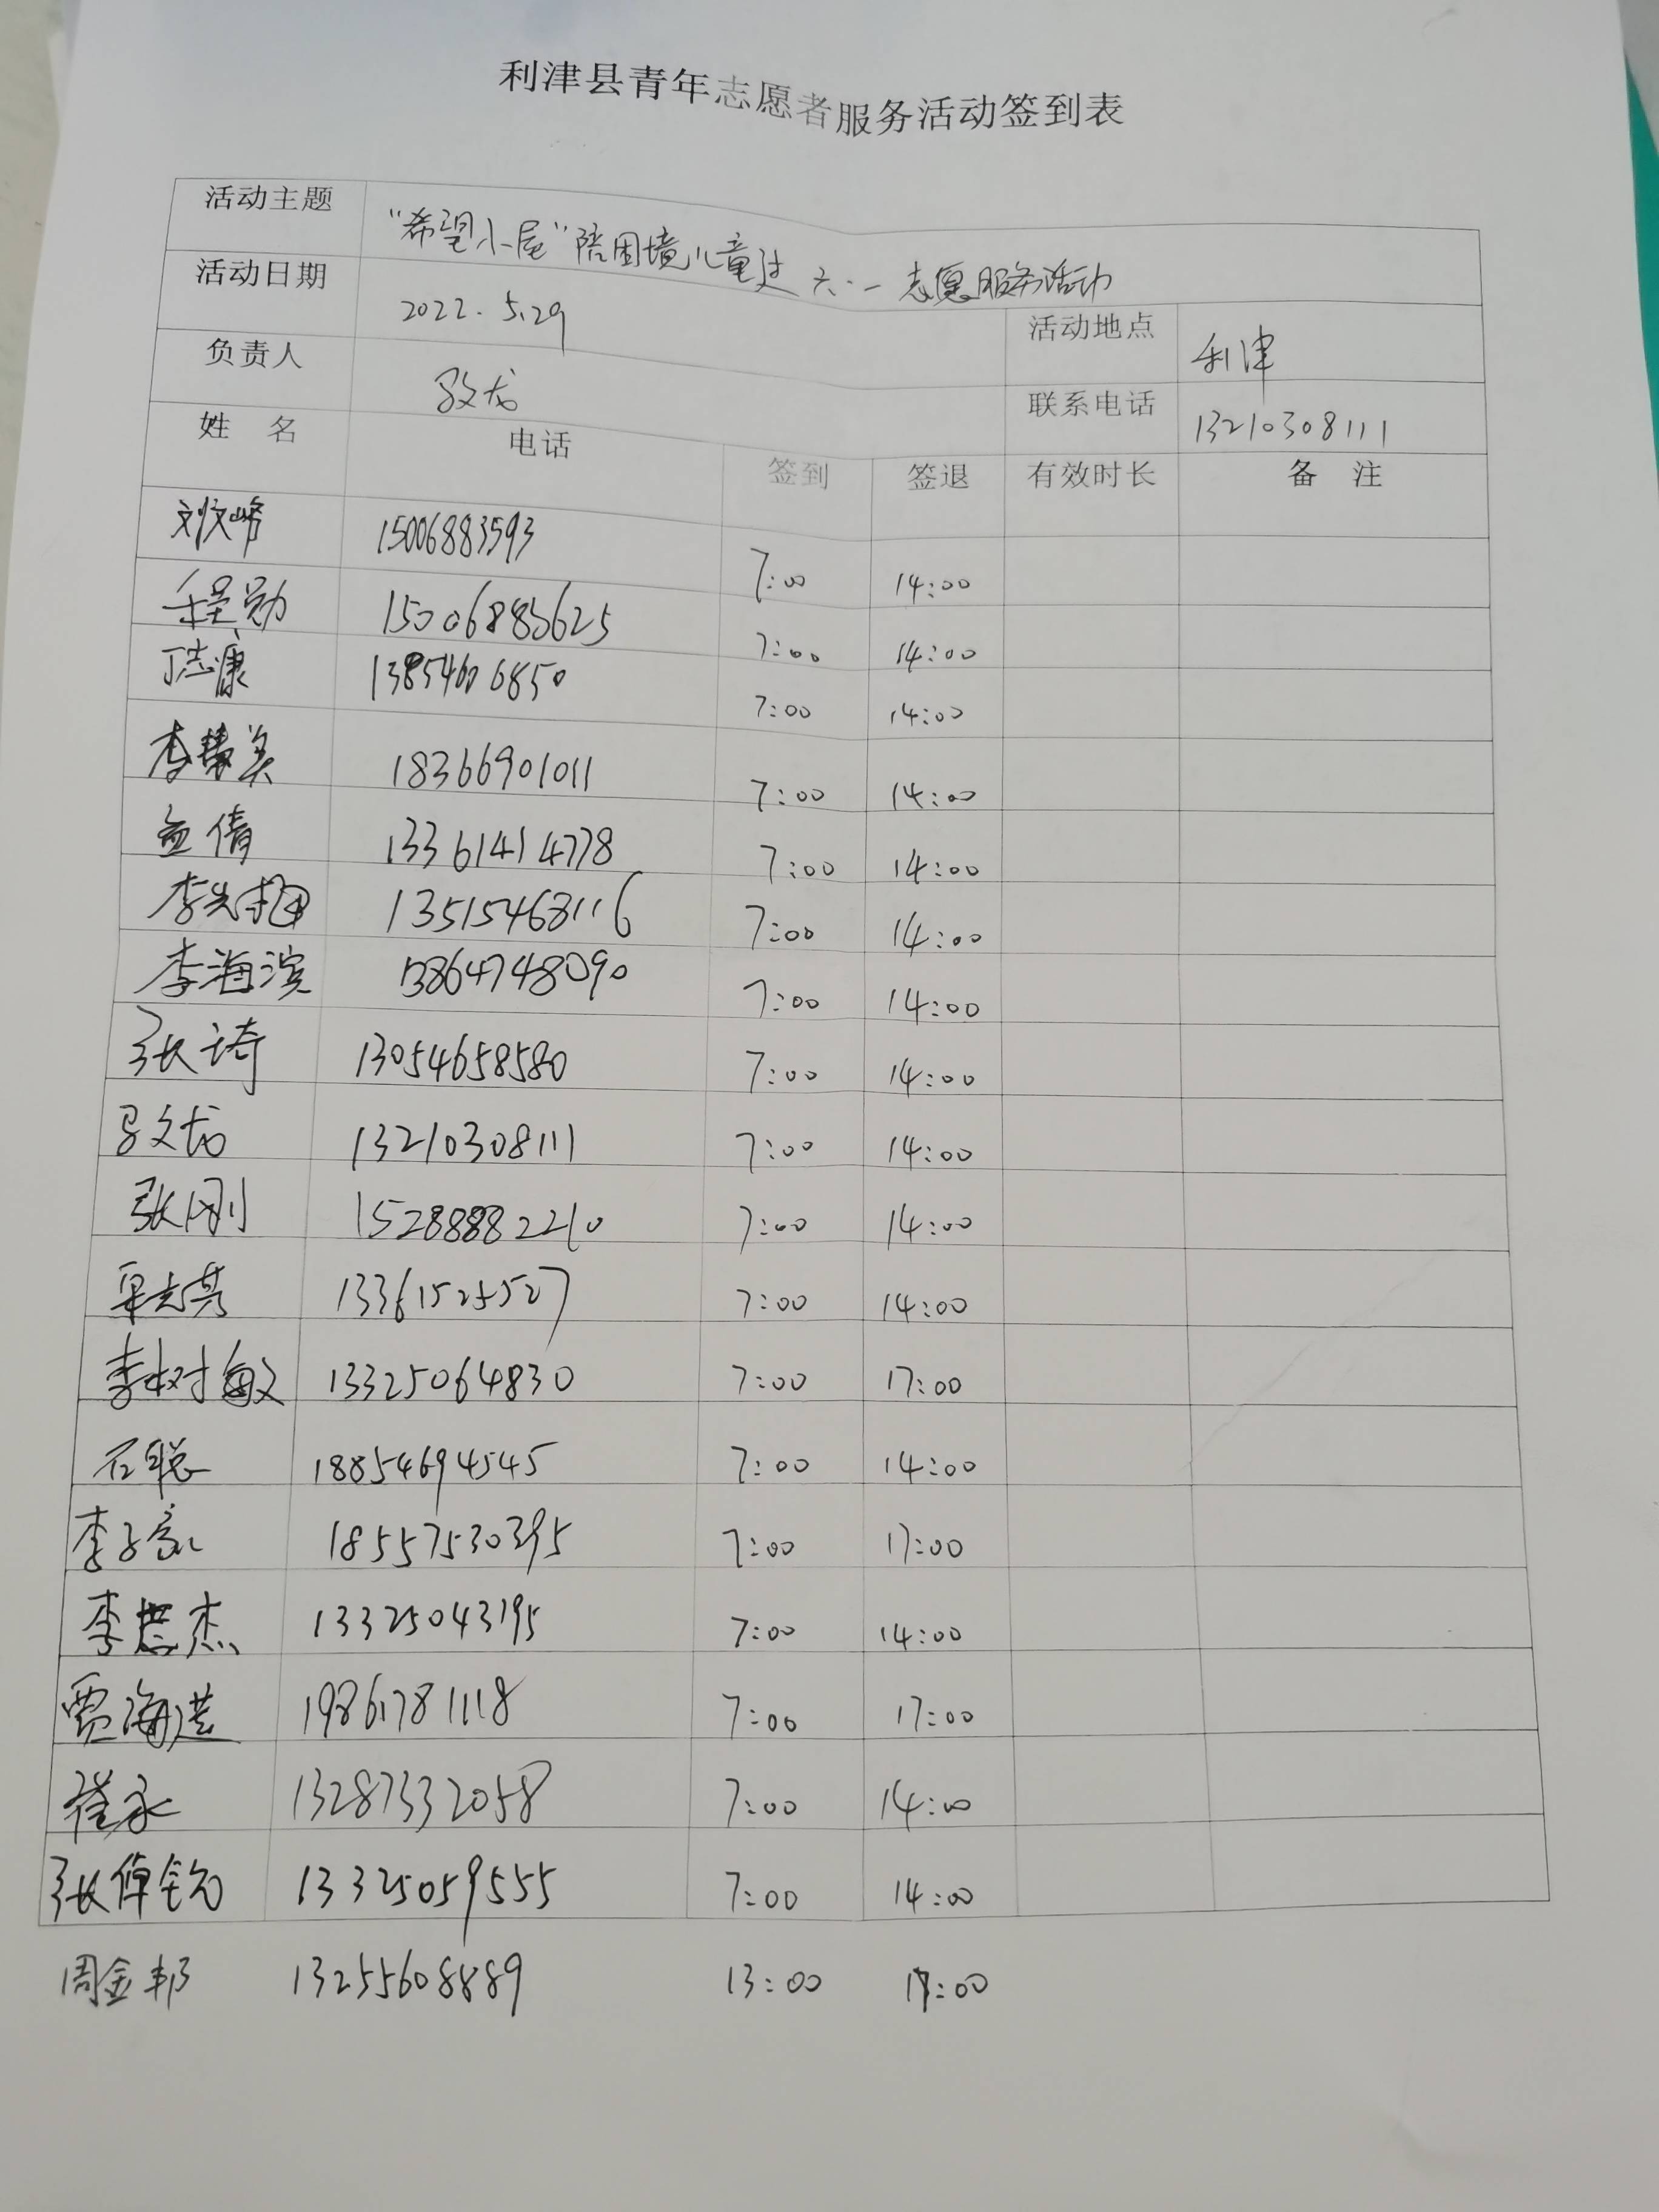 利津县青年志愿者服务活动签到表
活动主题 “希望小屋”陪困境儿童过六·一志愿服务活动
活动日期 2022.5.29 活动地点 利津
负责人 联系电话 13210308111
姓 名 电话 签到 签退 有效时长 备 注
刘文峰 15006883593 7:00 14:00
程勋 15006883625 7:00 14:00
丁志康 13854606850 7:00 14:00
李慧美 18366901011 7:00 14:00
孟倩 13361414778 7:00 14:00
李光 13515468116 7:00 14:00
李海滨 13864748090 7:00 14:00
张琦 13054658580 7:00 14:00
文龙 13210308111 7:00 14:00
张刚 15288882210 7:00 14:00
13361525527 7:00 14:00
李树敏 13325064830 7:00 17:00
石聪 18854694545 7:00 14:00
李子豪 18557530395 7:00 17:00
李杰 13325043195 7:00 14:00
贾海 19861781118 7:00 17:00
崔永 13287332058 7:00 14:00
张倬铭 13325059555 7:00 14:00
周金邦 13255608889 13:00 17:00